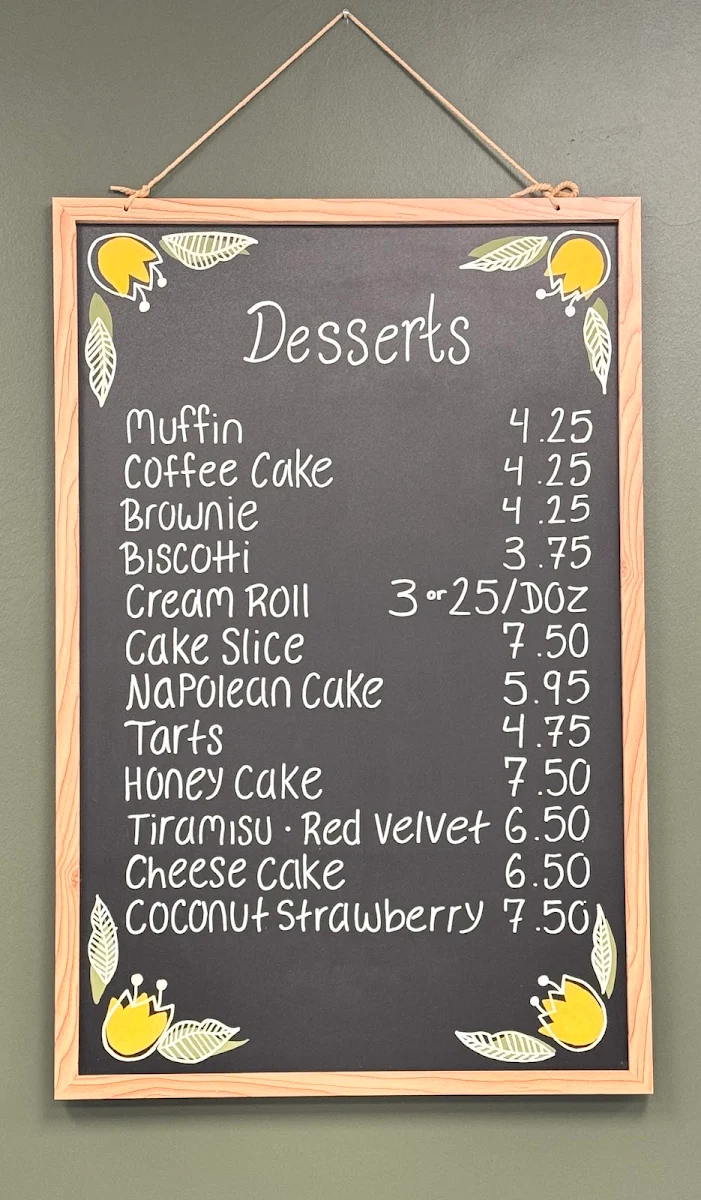 Desserts
Muffin 4.25
Coffee Cake 4.25
Brownie 4.25
Biscotti 3.75
Cream Roll 3 or 25/DOZ
Cake Slice 7.50
Napolean Cake 5.95
Tarts 4.75
Honey Cake 7.50
Tiramisu · Red Velvet 6.50
Cheese Cake 6.50
Coconut Strawberry 7.50